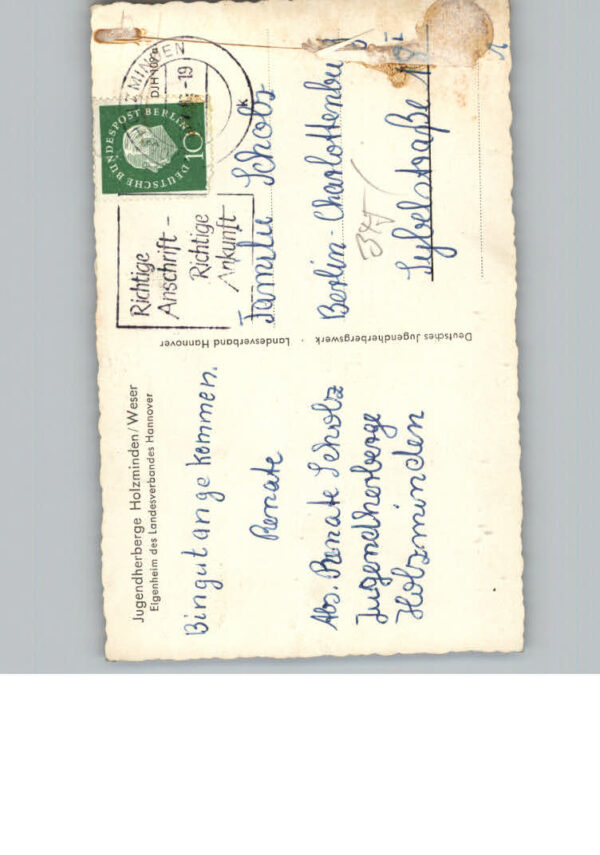 Jugendherberge Holzminden/Weser
Eigenheim des Landesverbandes Hannover
Bin gut angekommen.
Renate
Abs. Renate Scholz
Jugendherberge
Holzminden
Deutsches Jugendherbergswerk · Landesverband Hannover
DEUTSCHE BUNDESPOST BERLIN
10
-19
k
Richtige
Anschrift-
Richtige
Ankunft
Familie Scholz
Berlin-Charlottenbu
Sybelstraße